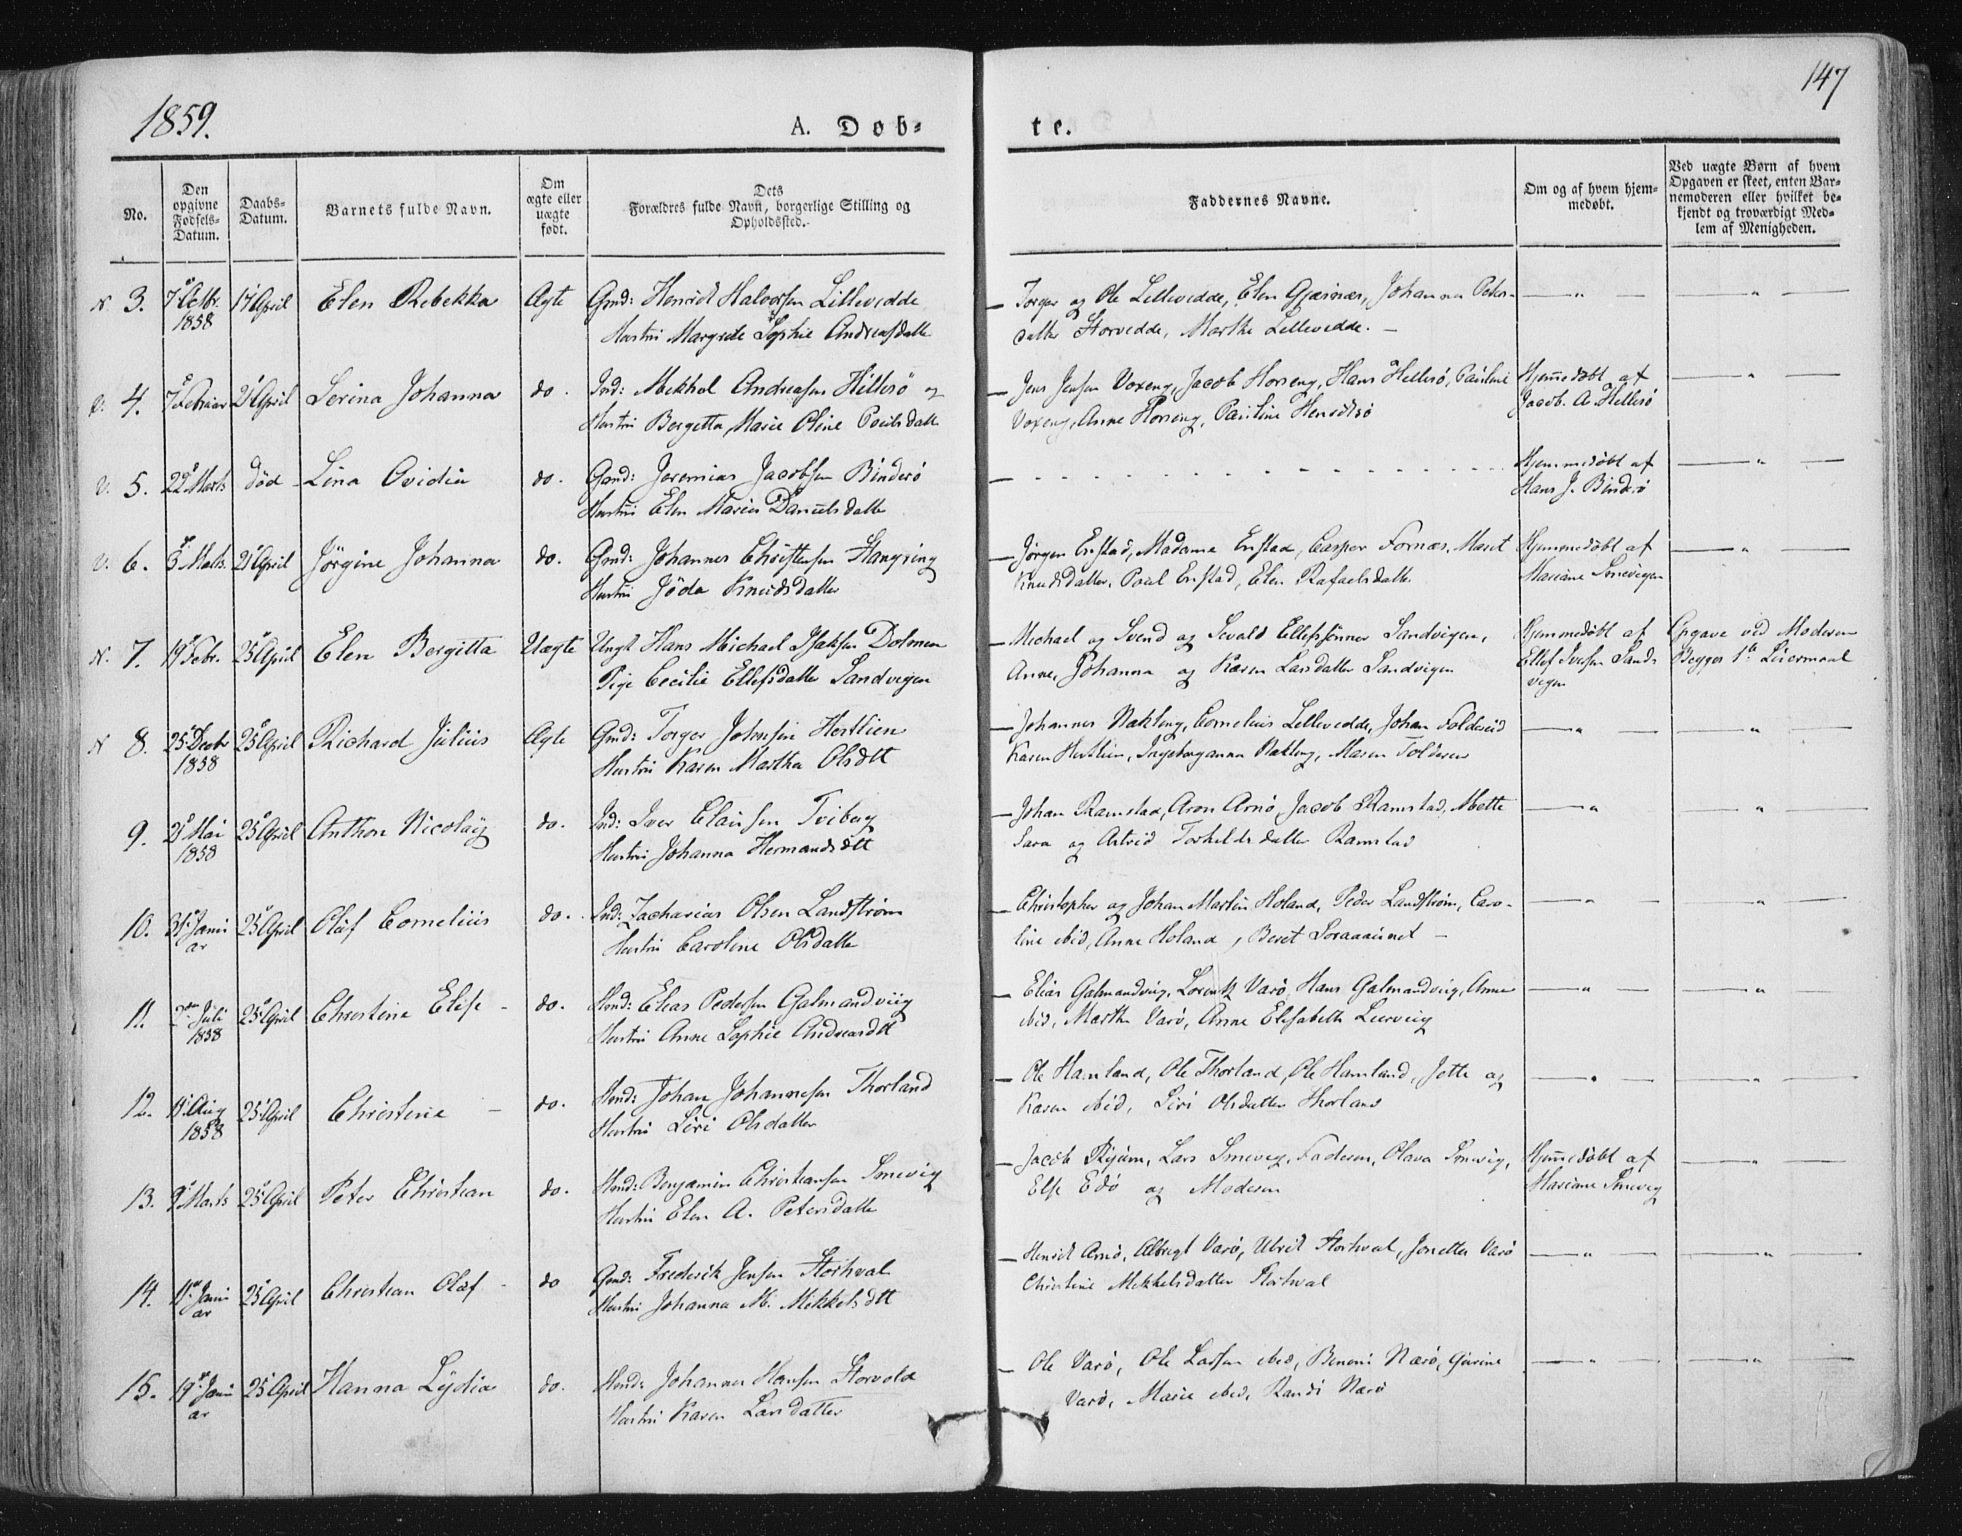 1859.
A. Døb-
te.
147
No.
Den opgivne Fødsels-Datum.
Daabs-Datum.
Barnets fulde Navn.
Om ægte eller uægte født.
Dets Forældres fulde Navn, borgerlige Stilling og Opholdssted.
Faddernes Navne.
Om og af hvem hjemmedøbt.
Ved uægte Børn af hvem Opgaven er skeet, enten Barnemoderen eller hvilket bekjendt og troværdigt Medlem af Menigheden.
N. 3. 7de Octbr. 1858 17 April Elen Rebekka Ægte Gmd: Henrik Halvorsen Lillevedde
Hustrü Margrete Sophie Andreasdatter
Torger og Ole Lillevedde, Elen Gjæsnæs, Johanna Peters-
datter Storvedde, Marthe Lillevedde. —
V. 4. 21 April Serina Johanna do. Ind: Mekkel Andreasen Hellesö og
Hustrü Bergitta Marie Oline Poülsdatt
Jens Jensen Voxeng, Jacob Horseng, Hans Hellesö, Pauline
Voxeng, Anne Horseng, Pauline Henriksö
Hjemmedøbt af
Jacob. A. Hellesö
V. 5. 22 Marts død Lina Ovidia do. Gmd: Jeremias Jacobsen Binderö
Hustrü Elen Maria Danielsdatter
Hjemmedøbt af
Hans J. Binderö
V. 6. 3 Marts. 21 April Jörgine Johanna do. Gmd: Johannes Christensen
Hustrü Jöda Knudsdatter
Jörgen Enstad, Madame Enstad, Casper Fornæs, Maret
Knudsdatter, Poul Enstad, Elen Rafaelsdatter
Hjemmedøbt af
Mariane Smevigen
N. 7. 19 Febr. 25 April Elen Bergitta Uægte Ungk Hans Michael Isaksen Dolmen
Pige Cecilie Ellefsdatter Sandvigen
Michael og Svend og Sevald Ellefssönner Sandvigen,
Anne, Johanna og Karen Larsdatter Sandvigen
Hjemmedøbt af
Ellef Iversen Sand-
vigen
Opgave ved Moderen
Begges 1te Leiermaal
N 8. 25 Decbr 1858 25 April Richard Jülius Ægte Gmd: Torger Johnsen Hestlien
Hustrü Karen Martha Olsdtt
Johannes Nakling, Cornelius Lillevedde, Johan Foldereid
Karen Hestlien, Ingeborganna Nakling, Maren Folderen
9. 2 Mai 1858 25 April Anthon Nicolaÿ do. Ind: Iver Clausen Tviberg
Hustrü Johanna Hermandsdtt
Johan Ramstad, Aron Arnö, Jacob Ramstad, Mette
Sara og Astrid Torkeldsdatter Ramstad
10. 31 Janü ar 25 April Oluf Cornelius do. Ind: Zacharias Olsen Landstrøm
Hustrü Caroline Olsdatter
Christopher og Johan Martin Holand, Peder Landstrøm, Caro-
line ibid, Anne Holand, Beret —
11. 2den Jüli 1858 25 April Christine Elise do. Hmd: Elias Pedersen Galmandviig
Hustrü Anne Sophie Andreasdtt
Elias Galmandvig, Lorentz Varö, Hans Galmandvig, Anne
ibid, Marthe Varö, Anne Elisabeth Lurviig
12. 11 Aug 1858 25 April Christine do. Hmd: Johan Johannesen Thorland
Hustrü Siri Olsdatter
Ole Hamland, Ole Thorland, Ole Hamland, Jotte og
Karen ibid, Siri Olsdatter Thorland
13. 9 Marts 25 April Peter Christian do. Hmd: Benjamin Christiansen Smevig
Hustrü Elen A. Petersdatter
Jacob Ryum, Lars Smevig, Faderen, Olava Smevig,
Else Edö og Moderen
Hjemmedøbt af
Mariane Smevig
14. 11 Janü ar 25 April Christian Olüf do Gmd: Frederik Jensen Storhval
Hustrü Johanna M. Mikkelsdtt
Henrik Arnö, Albregt Varö, Ulrik Storhval, Jonetta Varö
Christine Mekkelsdatter Storhval
15. 19 Janü ar 25 April Hanna Lÿdia do. Hmd: Johannes Hansen Storvold
Hustrü Karen Larsdatter
Ole Varö, Ole Larsen ibid, Benoni Nærö, Gurine
Varö, Marie ibid, Randi Nærö